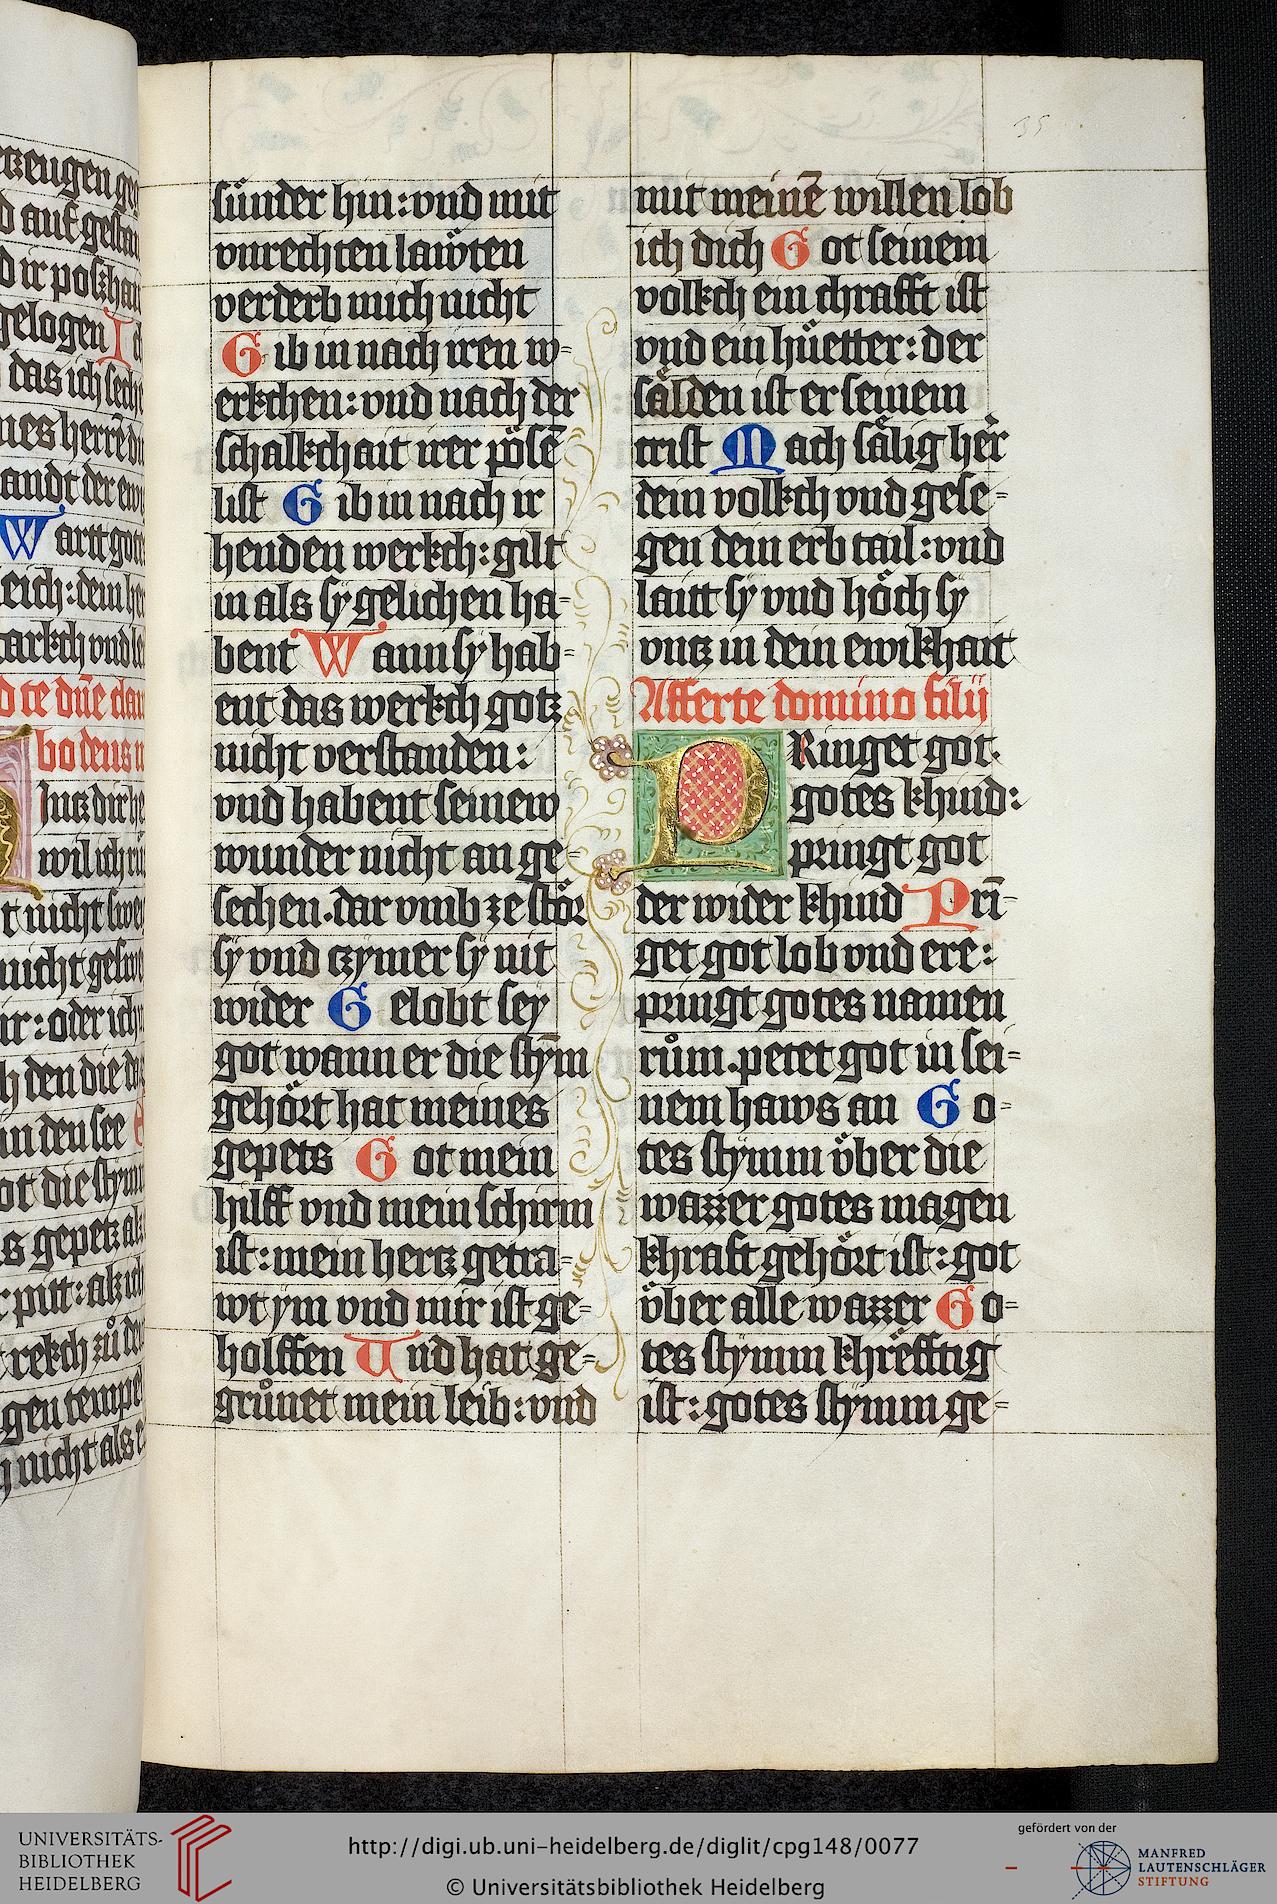 35
sünder hin: vnd mit
vnrechten laẅten
verderb mich nicht
Gib in nach iren w-
erkchen: vnd nach der
schalkchait irer pösē
list Gib in nach ir
henden werkch: gilt
in als sy gelichen ha-
bent Wann sy hab-
ent das werkch gotz
nicht verstanden:
vnd habent seinew
wunder nicht an ge-
sechen. dar vmb ze stör
sy vnd czymer sy nit
wider Gelobt sey
got wann er die stym̄
gehört hat meines
gepets Got mein
hilff vnd mein schirm
ist: mein hertz getra-
wt ym vnd mir ist ge-
holffen Vnd hat ge-
grůnet mein leib: vnd
mit meinē willen lob
ich dich Got seinem
volkch ein chrafft ist
vnd ein hüetter: der
sälden ist er seinem
crist Mach sälig her
dein volkch vnd gese-
gen dein erb tail: vnd
laitt sy vnd höch sy
vntz in dem ewikhait
Afferte domino filij
PRinget got
gotes khind:
pringt got
der wider khind Prī-
get got lob vnd ere:
pringt gotes namen
rům. petet got in sei-
nem haws an Go-
tes stymm über die
wazzer gotes magen
khraft gehört ist: got
über alle wazzer Go-
tes stymm khrëfftig
ist: gotes stymm ge-
UNIVERSITÄTS-
BIBLIOTHEK
HEIDELBERG
http://digi.ub.uni-heidelberg.de/diglit/cpg148/0077
© Universitätsbibliothek Heidelberg
gefördert von der
MANFRED
LAUTENSCHLÄGER
STIFTUNG